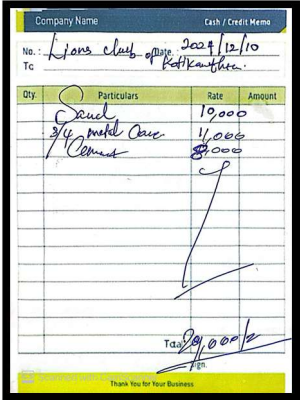 Company Name Cash / Credit Memo
No. : Lions club of Date : 2024/12/10
To
Qty. Particulars Rate Amount
Sand 10,000
3/4 metal 11,000
Cement 8,000
Total 29,000/=
Sign.
Thank You for Your Business